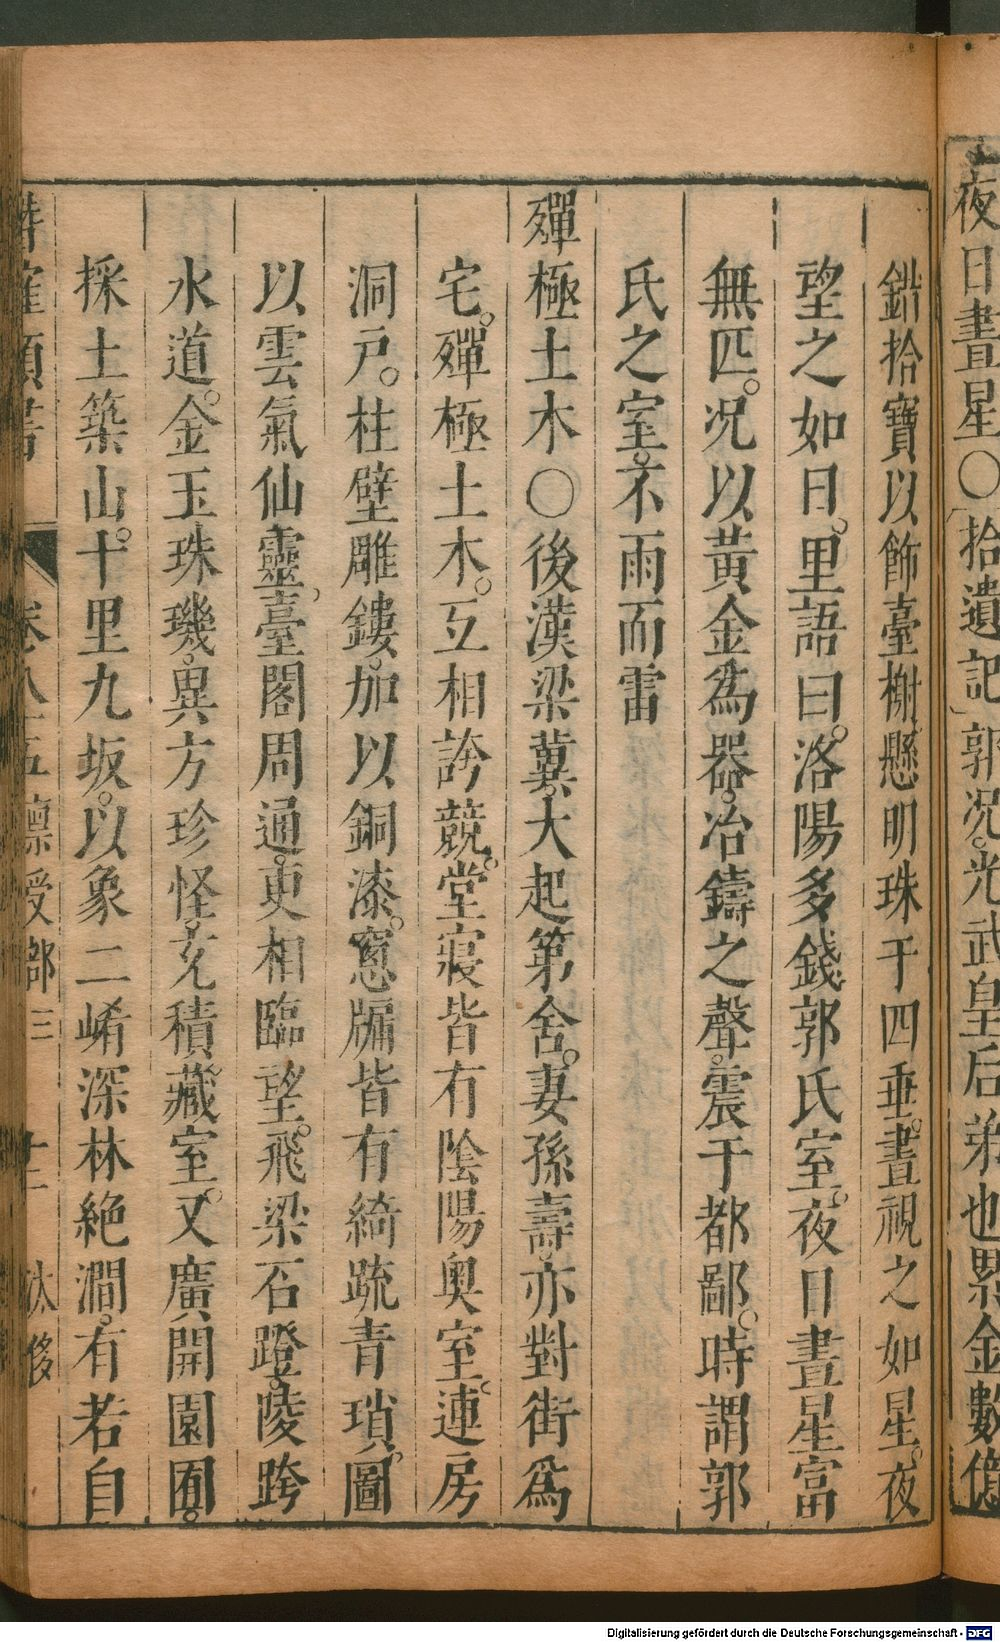 夜日晝星〇拾遺記郭况。光武皇后弟也累金數億
錯拾寶以飾臺榭懸明珠于四垂。晝視之如星。夜
望之如日。里語曰。洛陽多錢郭氏室。夜日晝星富
無匹。况以黃金爲器。冶鑄之聲。震于都鄙。時謂郭
氏之室。不雨而雷
殫極土木〇後漢梁冀。大起第舍。妻孫壽。亦對街爲
宅。殫極土木。互相誇競。堂寢皆有陰陽奥室。連房
洞戸。柱壁雕鏤。加以銅漆。窻牖皆有綺疏青瑣。圖
以雲氣仙靈。臺閣周通。更相臨望。飛梁石蹬。陵跨
水道。金玉珠璣。異方珍怪。充積藏室。又廣開園囿。
採土築山。十里九坂。以象二崤深林絶澗。有若自
卷八十五禀受部三 十二 汰侈
Digitalisierung gefördert durch die Deutsche Forschungsgemeinschaft - DFG